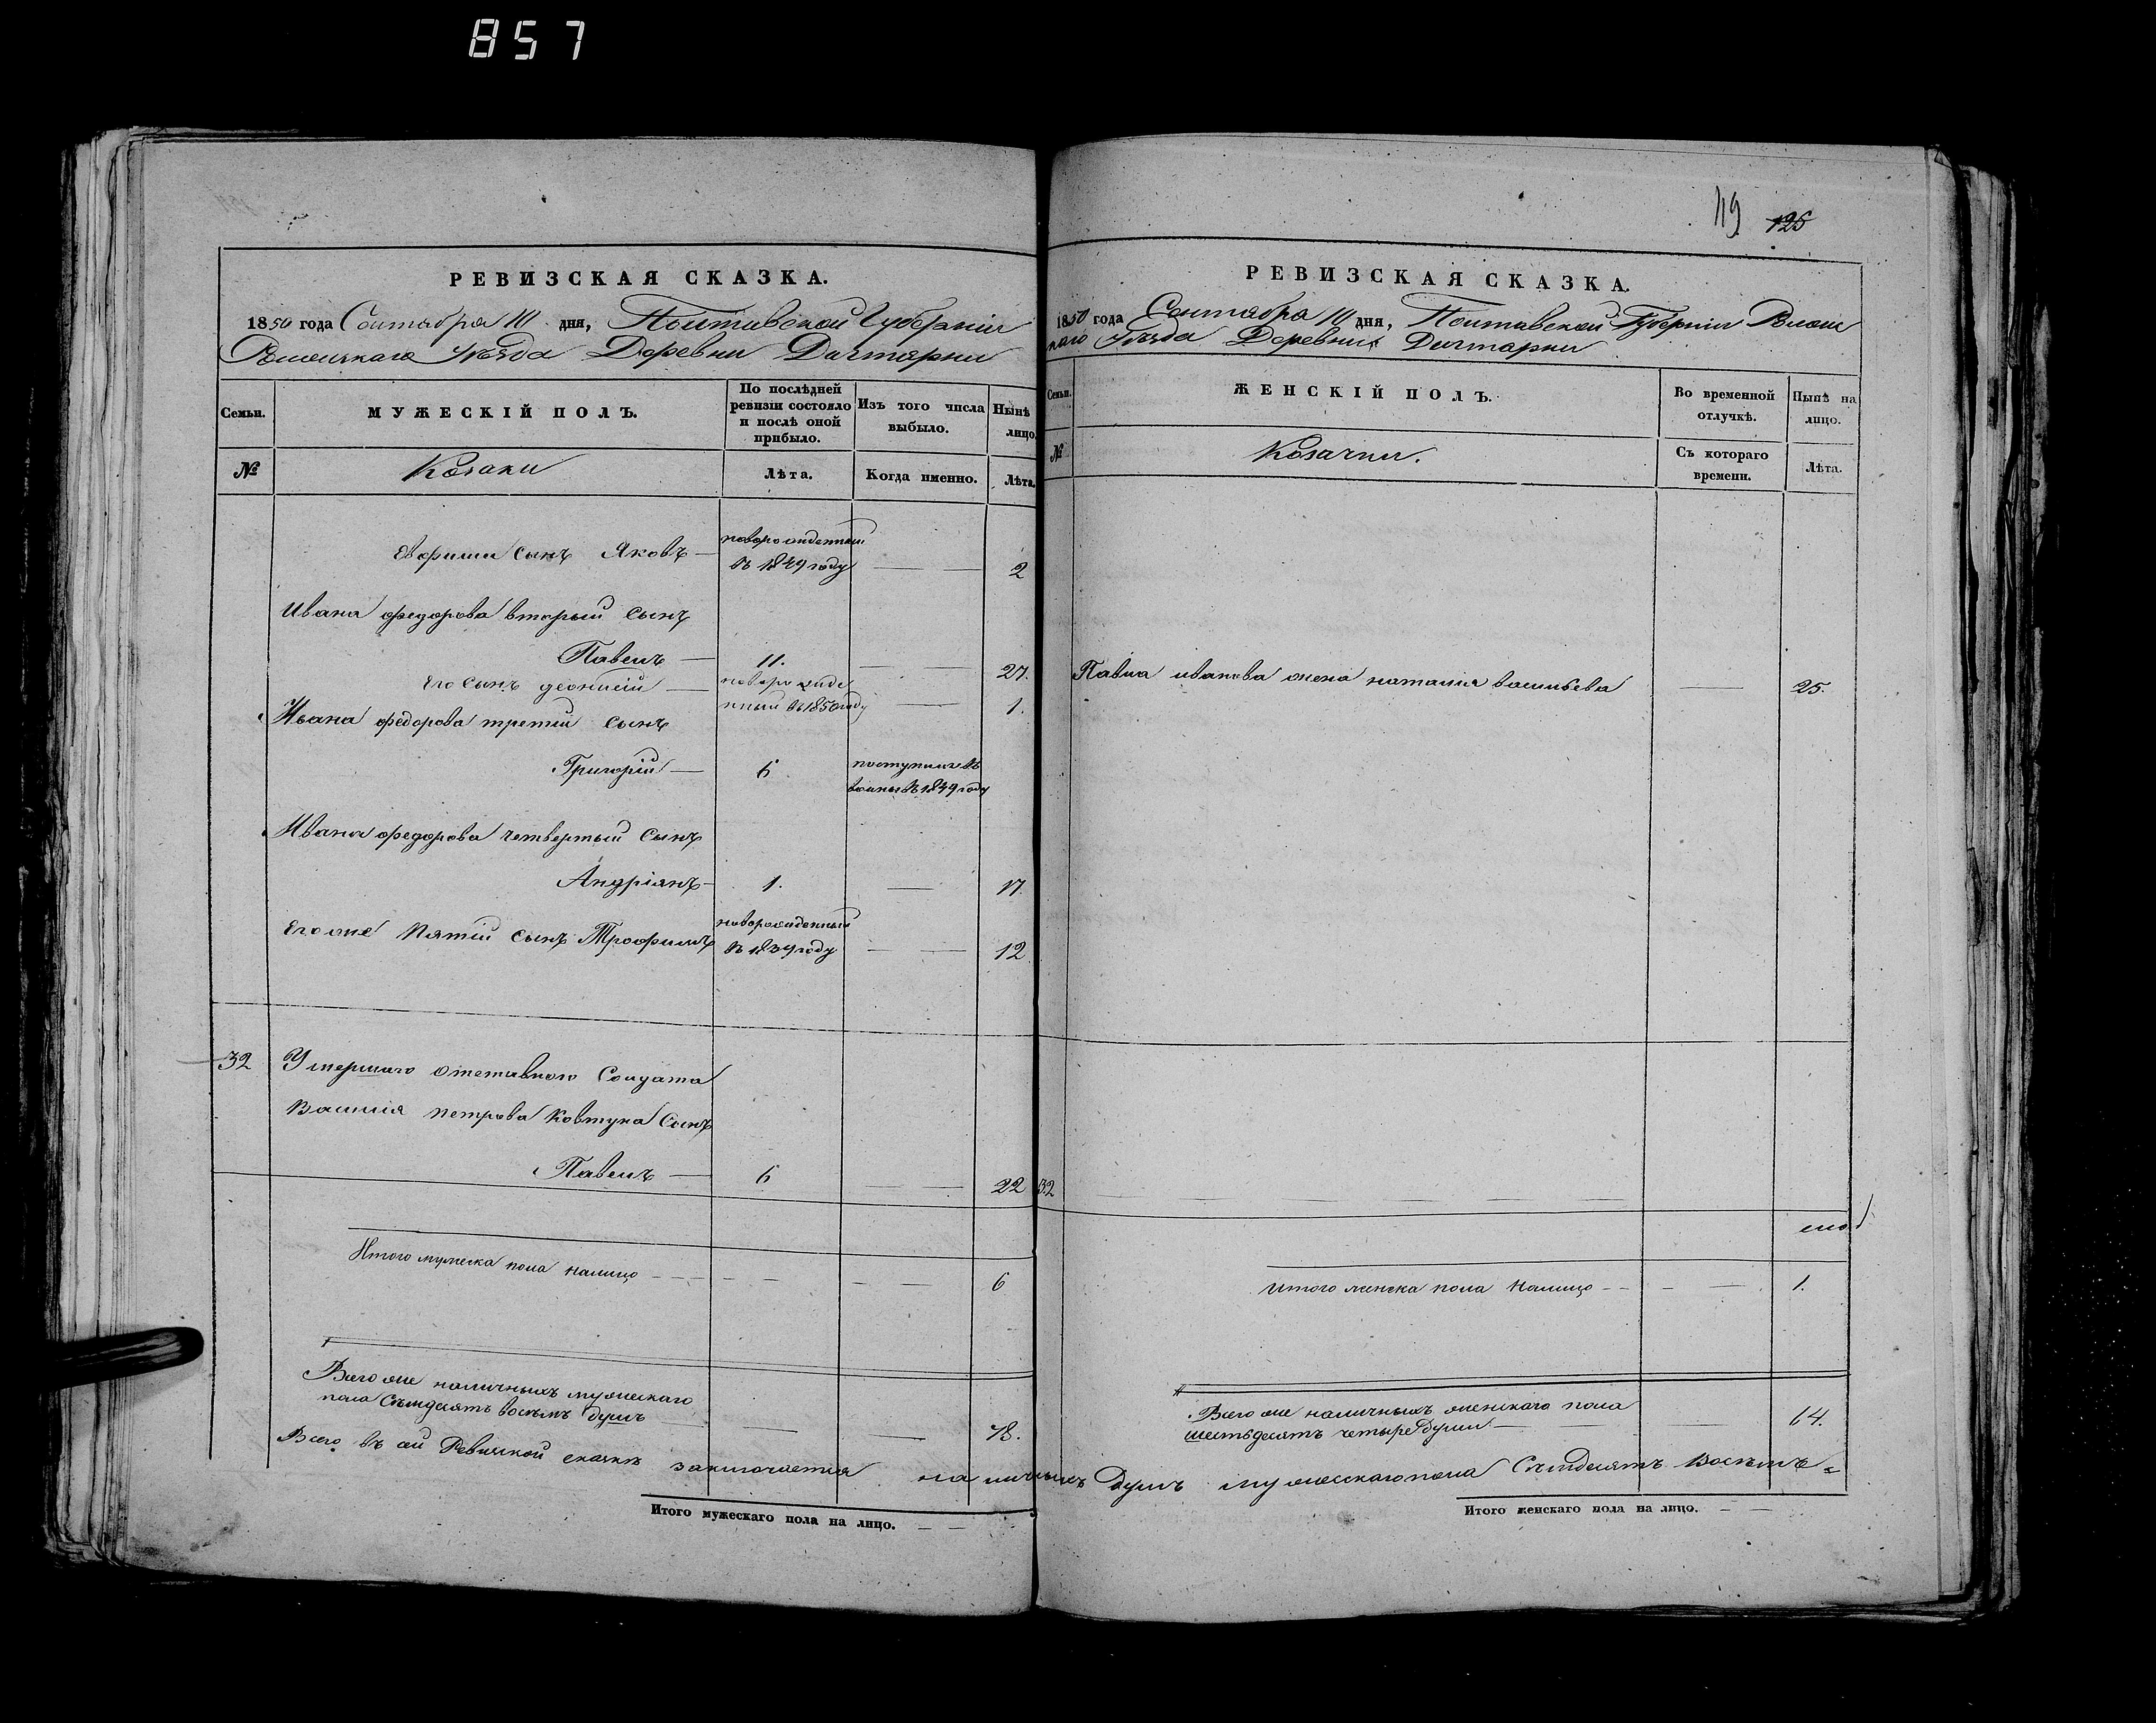 857
119 125
РЕВИЗСКАЯ СКАЗКА.
1850 года Сентября 10 дня, Полтавской Губерніи
Роменскаго Уѣзда Деревни Дихтярки
Семьи.
МУЖЕСКІЙ ПОЛЪ.
По послѣдней ревизіи состояло и послѣ оной прибыло.
Изъ того числа выбыло.
Нынѣ лицо.
№
Козаки
Лѣта.
Когда именно.
Лѣта.
Ефрима сынъ Яковъ — новорожденный въ 1849 году — — 2
Ивана федорова вторый сынъ
Павелъ — 11. — — 27.
Его сынъ деонисій — новорожденный въ 1850 году — 1.
Ивана федорова третій сынъ
Григорій — 6 поступилъ въ 1849 году
Ивана федорова четвертый сынъ
Андріянъ — 1. — 17.
Его же пятій сынъ Трофимъ новорожденный въ 1839 году — — 12
32 Умершаго отставного Солдата
Василія петрова Ковтуна Сынъ
Павелъ — 6 — — 22
Итого мужеска пола налицо — — — — 6
Всего же наличныхъ мужескаго
пола Семдесятъ восемъ душъ — — — 78.
Всего въ сей Ревизской сказкѣ заключается наличныхъ Душъ мужескаго пола Семдесятъ Восемъ
Итого мужескаго пола на лицо. — —
РЕВИЗСКАЯ СКАЗКА.
1850 года Сентября 10 дня, Полтавской Губерніи Ромен
скаго Уѣзда Деревни Дихтярки
Семьи.
ЖЕНСКІЙ ПОЛЪ.
Во временной отлучкѣ.
Нынѣ на лицо.
№
Козачки.
Съ котораго времени.
Лѣта.
Павла иванова жена наталія васильева — 25.
32 — — — — — —
Итого женска пола налицо — — — — 1.
Всего же наличныхъ женскаго пола
шестьдесятъ четыре души — — 64.
Итого женскаго пола на лицо. — —